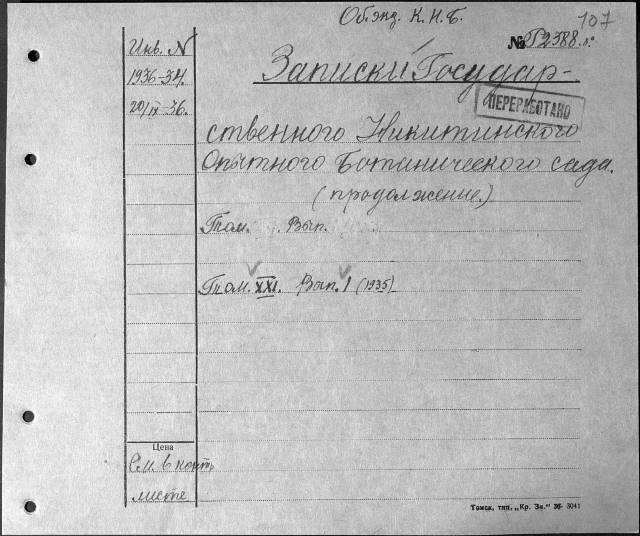 107
Об.энд. К.Н.Б.
№ Г2388.б.
Инв. N
1936-34.
20/IX-36.
Записки Государ-
ПЕРЕРАБОТАНО
ственного Никитинского
Опытного Ботанического сада.
(продолжение.)
Том. Вып.
Том. XXI. Вып. 1 (1935)
Цена
См. в конт.
листе
Томск, тип. „Кр. Зн.“ 36- 3041